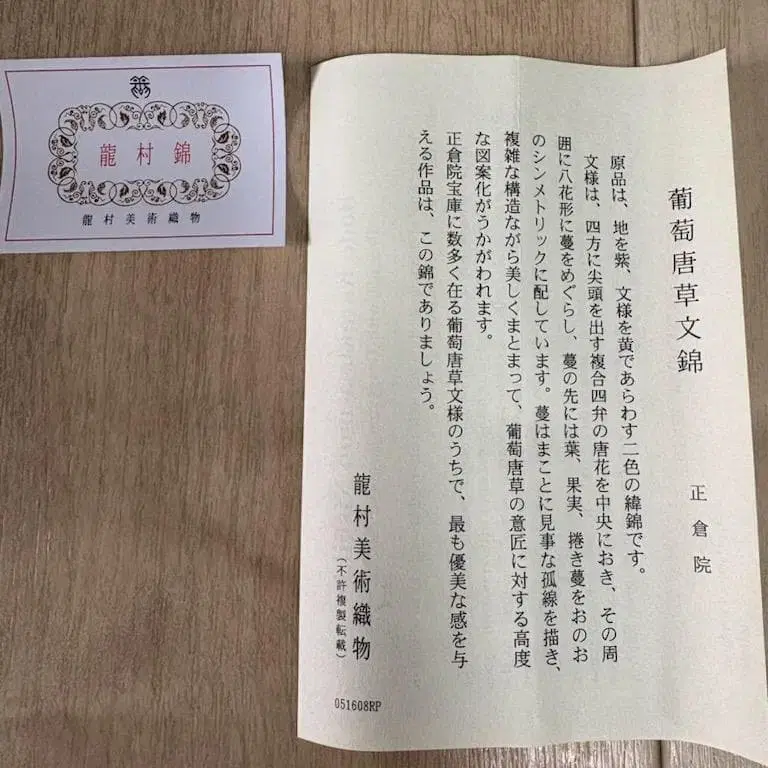 龍村錦
龍村美術織物
葡萄唐草文錦
正倉院
原品は、地を紫、文様を黄であらわす二色の緯錦です。
文様は、四方に尖頭を出す複合四弁の唐花を中央におき、その周
囲に八花形に蔓をめぐらし、蔓の先には葉、果実、捲き蔓をおのお
のシンメトリックに配しています。蔓はまことに見事な孤線を描き、
複雑な構造ながら美しくまとまって、葡萄唐草の意匠に対する高度
な図案化がうかがわれます。
正倉院宝庫に数多く在る葡萄唐草文様のうちで、最も優美な感を与
える作品は、この錦でありましょう。
龍村美術織物
（不許複製転載）
051608RP